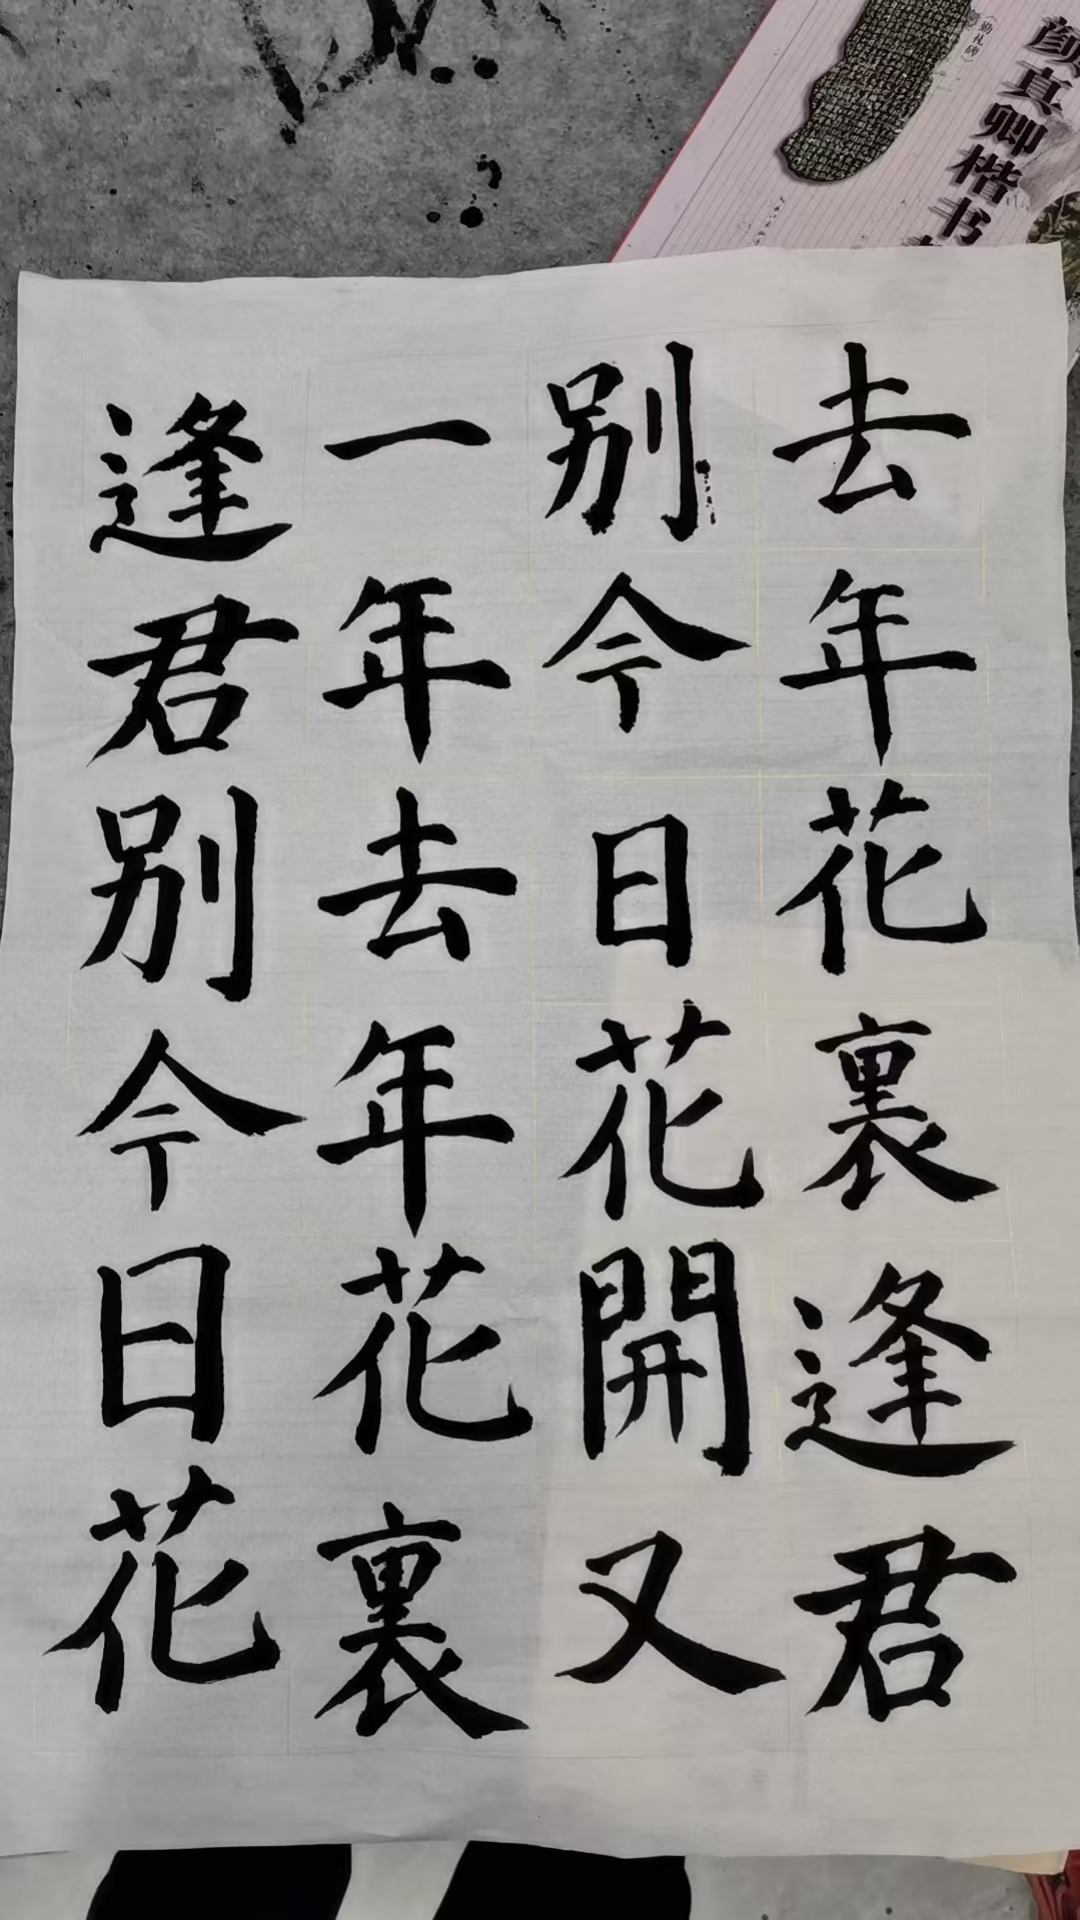 去年花裏逢君
别今日花開又
一年去年花裏
逢君别今日花
颜真卿楷书
勤礼碑